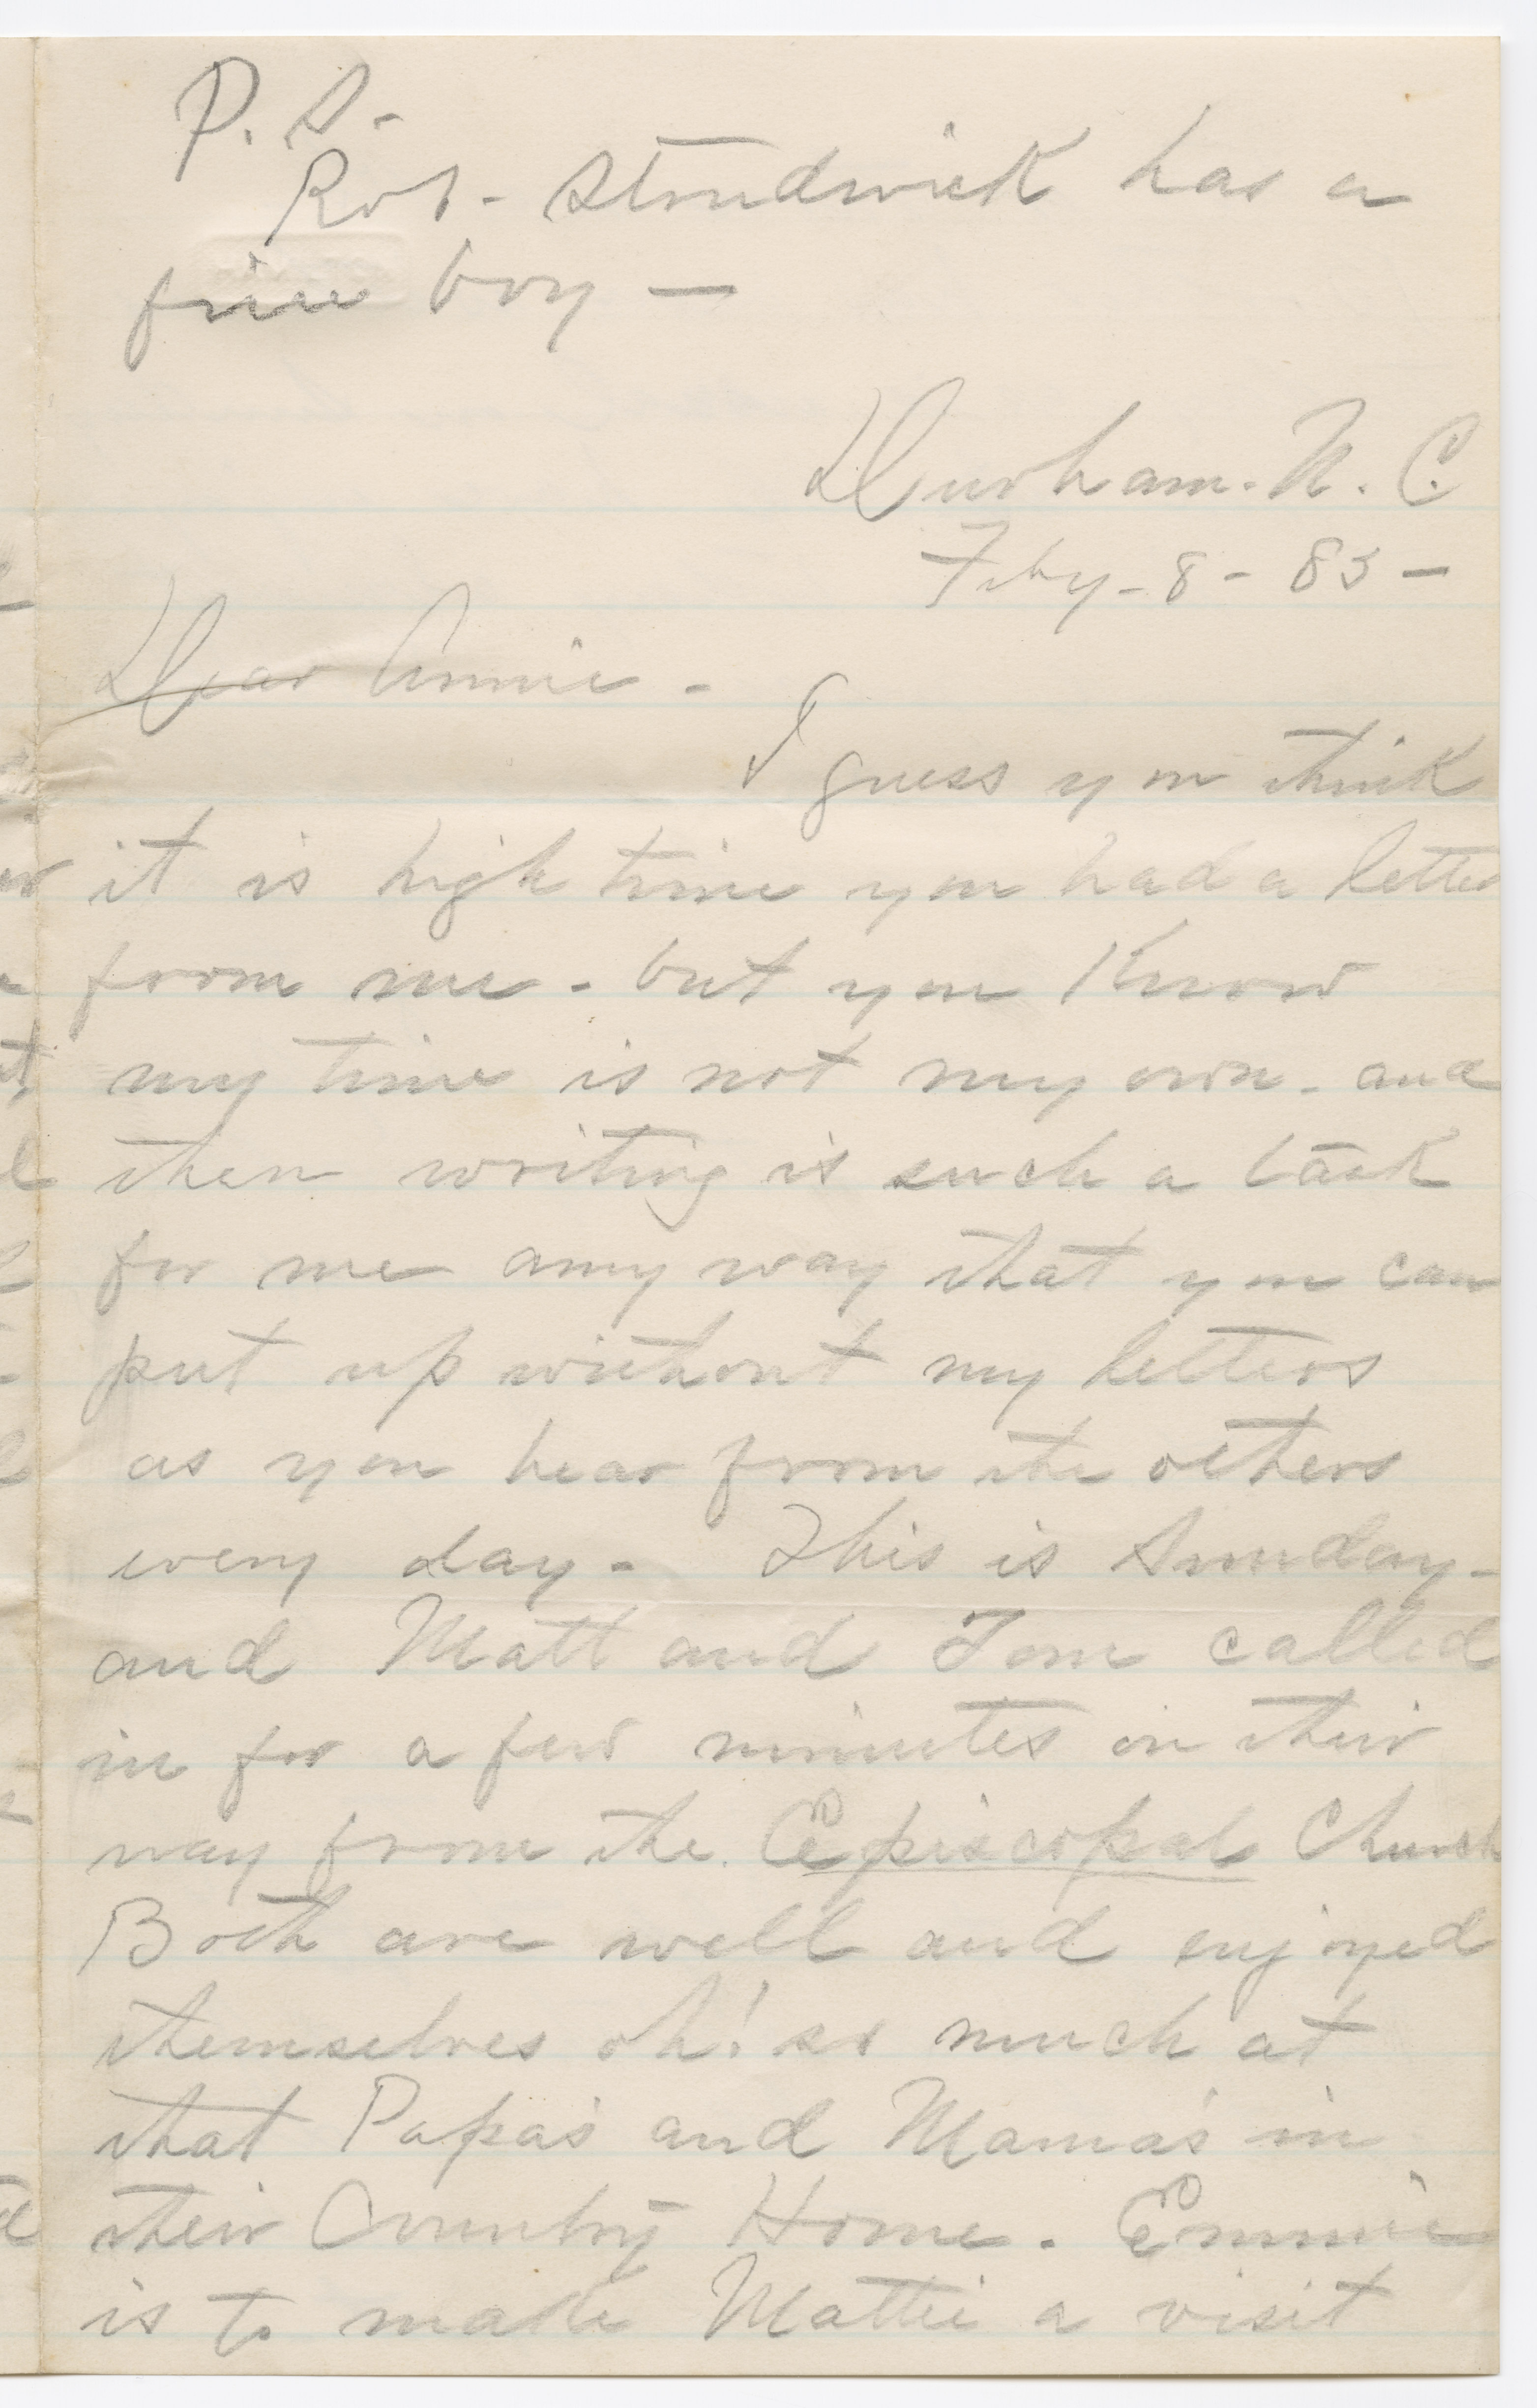 P. S. -
Rob - Strudwick has a
fine boy —
Durham. N. C.
Feby - 8 - 85 —
Dear Annie -
I guess you think
it is high time you had a letter
from me - but you Know
my time is not my own - and
then writing is such a task
for me any way that you can
put up without my letters
as you hear from the others
every day - This is Sunday -
and Matt and Tom called
in for a few minutes on their
way from the Episcopal Church
Both are well and enjoyed
themselves oh! so much at
that Papa's and Mama's in
their Country Home. Emmie
is to make Mattie a visit